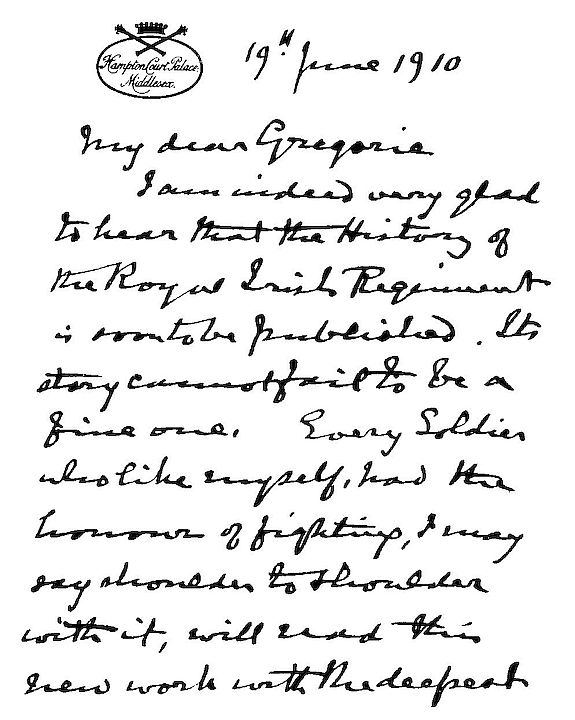 Hampton Court Palace
Middlesex.
19th June 1910
My dear Gregorie
I am indeed very glad
to hear that the History of
the Royal Irish Regiment
is soon to be published. Its
story cannot fail to be a
fine one. Every Soldier
who like myself, had the
honour of fighting, I may
say shoulder to shoulder
with it, will read this
new work with the deepest